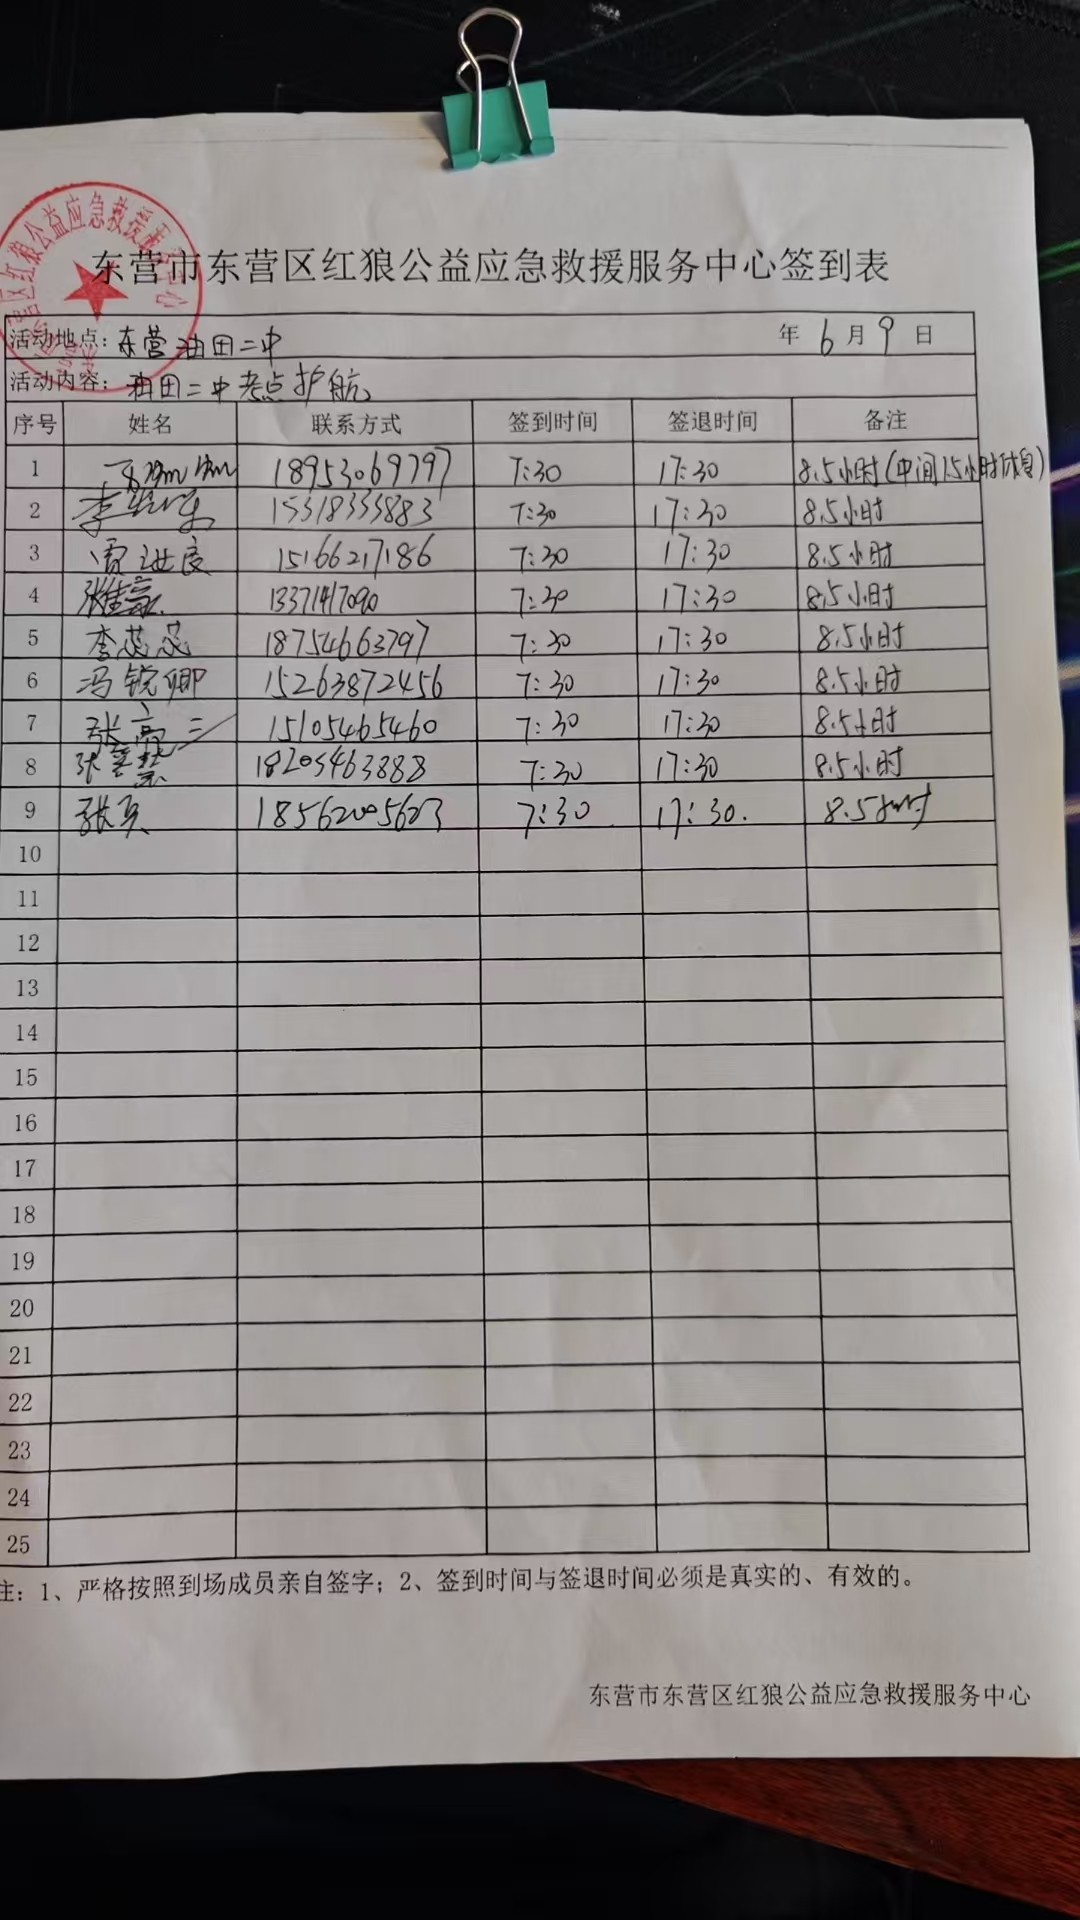 东营市东营区红狼公益应急救援服务中心签到表
活动地点：东营油田二中 年 6 月 9 日
活动内容：油田二中考点护航
序号 姓名 联系方式 签到时间 签退时间 备注
1 18953069797 7:30 17:30 8.5小时(中间1.5小时休息)
2 李 15318335883 7:30 17:30 8.5小时
3 贾进良 15166217186 7:30 17:30 8.5小时
4 张 13371417090 7:30 17:30 8.5小时
5 李蕊蕊 18754663797 7:30 17:30 8.5小时
6 冯锐卿 15263872456 7:30 17:30 8.5小时
7 张亮 15105465460 7:30 17:30 8.5小时
8 张 18205463888 7:30 17:30 8.5小时
9 张 18562005623 7:30 17:30. 8.5小时
10
11
12
13
14
15
16
17
18
19
20
21
22
23
24
25
注：1、严格按照到场成员亲自签字；2、签到时间与签退时间必须是真实的、有效的。
东营市东营区红狼公益应急救援服务中心